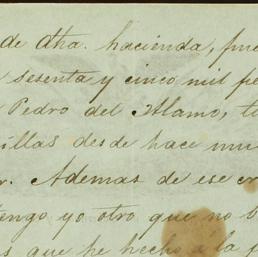 de dha. hacienda, pue
sesenta y cinco mil pe
Pedro del Alamo, t
illas desde hace mu
r. Ademas de ese cr
tengo yo otro que no b
s que he hecho á la